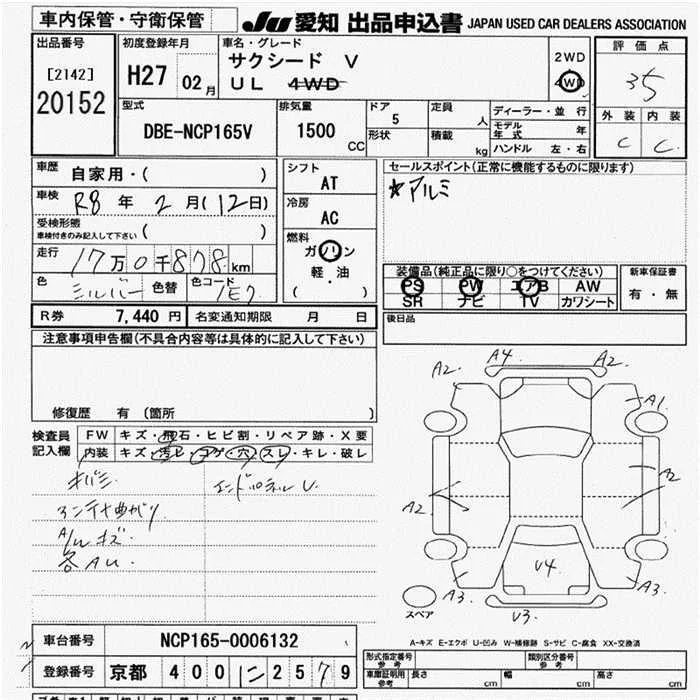 車内保管・守衛保管 JU 愛知 出品申込書 JAPAN USED CAR DEALERS ASSOCIATION
出品番号 初度登録年月 車名・グレード 評価点
[2142] H27 02月 サクシード V 2WD
20152 UL 4WD 4WD 35
型式 排気量 ドア 定員 ディーラー・並行 外装 内装
DBE-NCP165V 1500 CC 5 人 モデル年式 年 C C
形状 積載 kg ハンドル 左・右
車歴 自家用・( ) シフト セールスポイント(正常に機能するものに限ります)
AT ★アルミ
車検 R8 年 2 月(12日) 冷房
受検形態 AC
車検付きのみ記入して下さい ( )
走行 17万0千878km 燃料
ガソリン 装備品(純正品に限り○をつけてください) 新車保証書
色 シルバー 色替 色コード 1E7 軽・油 PS PW エアB AW 有・無
( ) SR ナビ TV カワシート
R券 7,440円 名変通知期限 月 日 後日品
注意事項申告欄(不具合内容等は具体的に記入して下さい)
修復歴 有 (箇所 )
A2 A4 A2
A1
検査員 FW キズ・飛石・ヒビ割・リペア跡・X要
記入欄 内装 キズ・汚レ・コゲ・穴・スレ・キレ・破レ
キバミ エンドパネルU.
アンテナ曲がり A2 A2
A/Wキズ
各AU. U4
A3 A3
スペア U3
A-キズ E-エクボ U-凹み W-補修跡 S-サビ C-腐食 XX-交換済
車台番号 NCP165-0006132
形式指定番号 参考 類別区分番号 参考
登録番号 京都 400 に 2579
車庫証明用 参考 長さ cm 幅 cm 高さ cm